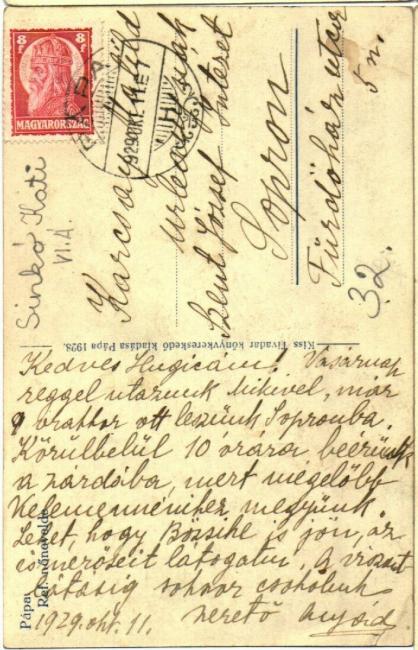 8 f 8 f
MAGYARORSZÁG
Karcsay
úrleánynak
Szent József Intézet
Sopron
Fürdőház utca
5 n.
32.
Sinkó Kati
VI.A
Kiss Tivadar könykereskedő kiadása Pápa 1928.
Kedves Hugicám! Vasárnap
reggel utazunk Mikivel, már
9 órakkor ott leszünk Sopronba.
Körülbelül 10 órára beérünk
a zárdába, mert megelőbb
Kelemennénihez megyünk.
Lehet, hogy Bözsike is jön, az
ismerőseit látogatni. A viszont
látásig sokszor csókolunk
szerető anyád
1929. okt. 11.
Pápa.
Ref. nőnevelde